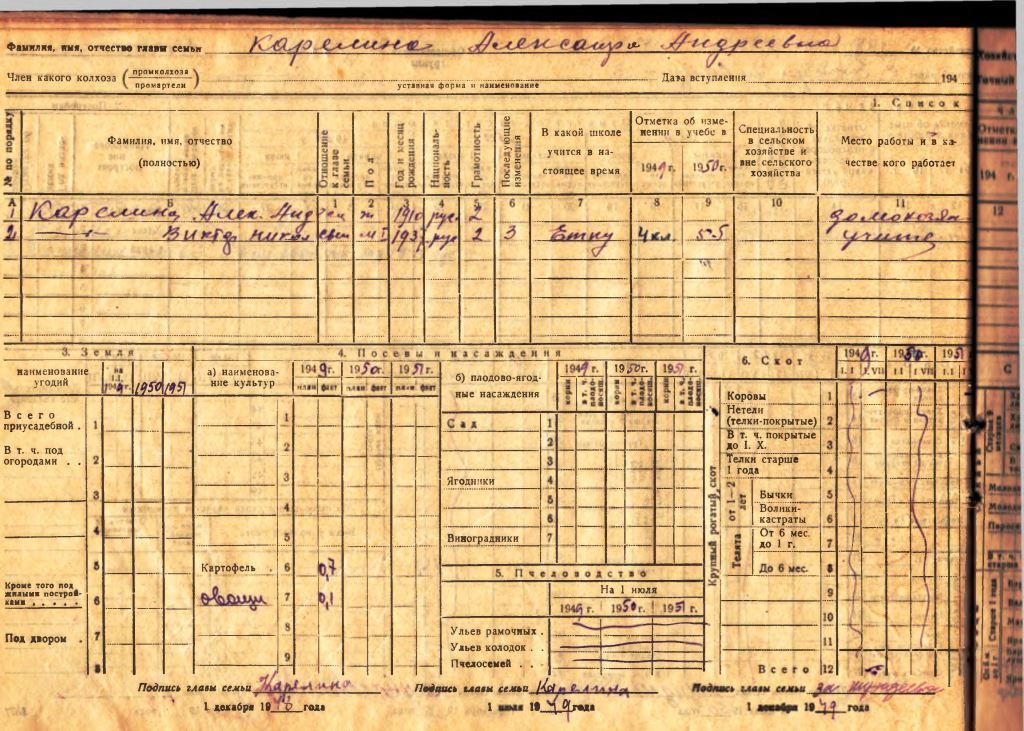 Фамилия, имя, отчество главы семьи Карелина Александра Андреевна
Член какого колхоза (промколхоза / промартели)
уставная форма и наименование
Дата вступления 194
1. Список
№ по порядку
Фамилия, имя, отчество (полностью)
Отношение к главе семьи
Пол
Год и месяц рождения
Националь-ность
Грамотность
Последующие изменения
В какой школе учится в на-стоящее время
Отметка об изме-нении в учебе в
1949 г. 1950 г.
Специальность в сельском хозяйстве и вне сельского хозяйства
Место работы и в ка-честве кого работает
А Б 1 2 3 4 5 6 7 8 9 10 11
1 Карелина Алек. Анд ж 1910 рус 2
2 Виктор Никол сын м 193 рус 2 3 4 кл. 5-5
3. Земля
наименование угодий
на 1.I. 1949 г. 1950 1951
Всего приусадебной . 1
В т. ч. под огородами . . 2
3
4
5
Кроме того под жилыми построй-ками . . . . . 6
Под двором . 7
8
4. Посевы и насаждения
а) наименова-ние культур
1949 г. 1950 г. 1951 г.
план факт план факт план факт
1
2
3
4
5
Картофель . 6 0,7
овощи 7 0,1
8
9
б) плодово-ягод-ные насаждения
1949 г. 1950 г. 1951 г.
корни в т. ч. плодо-носящ. корни в т. ч. плодо-носящ. корни в т. ч. плодо-носящ.
Сад 1
2
3
Ягодники 4
5
6
Виноградники 7
5. Пчеловодство
На 1 июля
1949 г. 1950 г. 1951 г.
Ульев рамочных .
Ульев колодок .
Пчелосемей . .
6. Скот
1949 г. 1950 г. 1951
I. I I. VII I. I I. VII I. I
Крупный рогатый скот
Коровы 1
Нетели (телки-покрытые) 2
В т. ч. покрытые до I. X. 3
Телки старше 1 года 4
от 1—2 лет
Бычки 5
Волики-кастраты 6
Телята
От 6 мес. до 1 г. 7
До 6 мес. 8
9
10
11
Всего 12
Подпись главы семьи Карелина
1 декабря 1948 года
Подпись главы семьи Карелина
1 июля 1949 года
Подпись главы семьи за
1 декабря 1949 года
194 г.
12